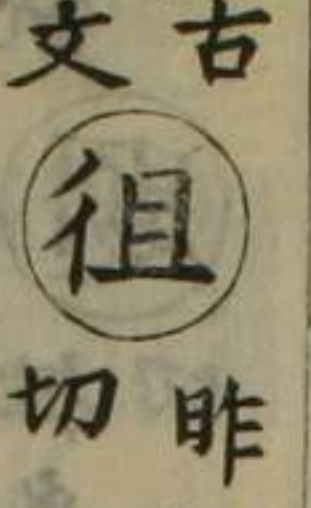 古
文
徂
昨
切